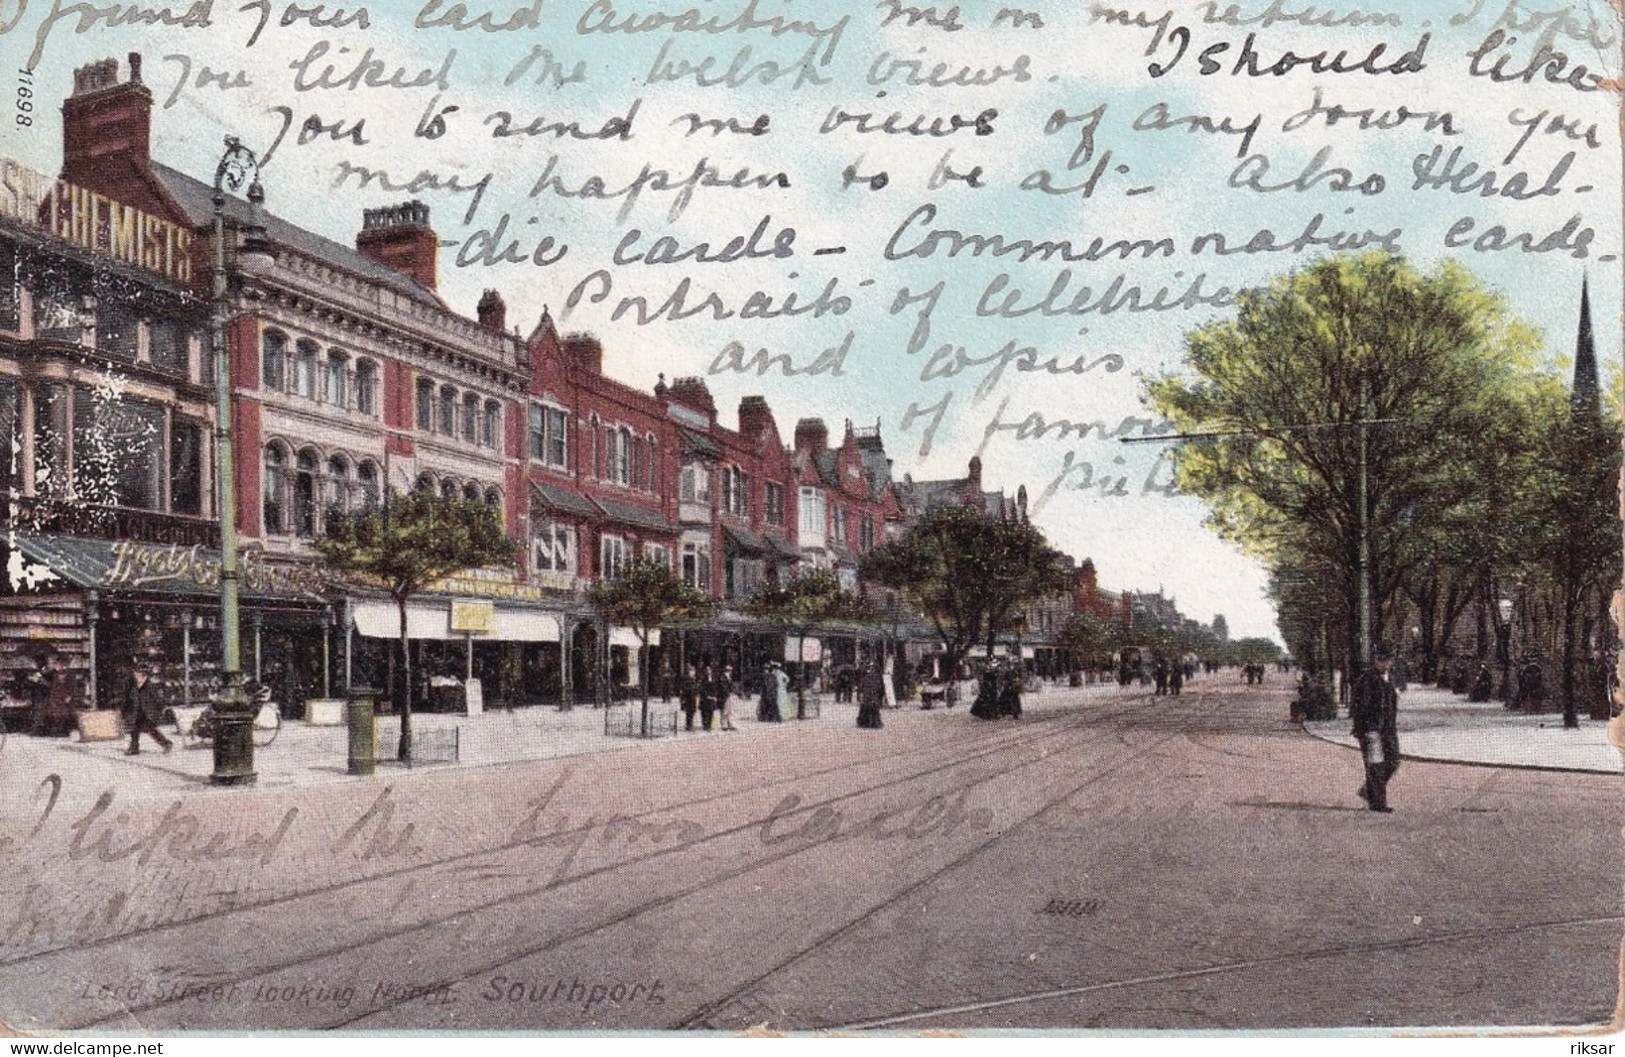 I found your card awaiting me on my return. I hope
you liked the Welsh views. I should like
you to send me views of any Town you
may happen to be at - Also Heral-
-dic cards - Commemorative cards -
Portraits of Celebrities
and copies
of famous
11698.
CHEMISTS
I liked the Lyons cards
Lord Street, looking North. Southport
delcampe.net
riksar